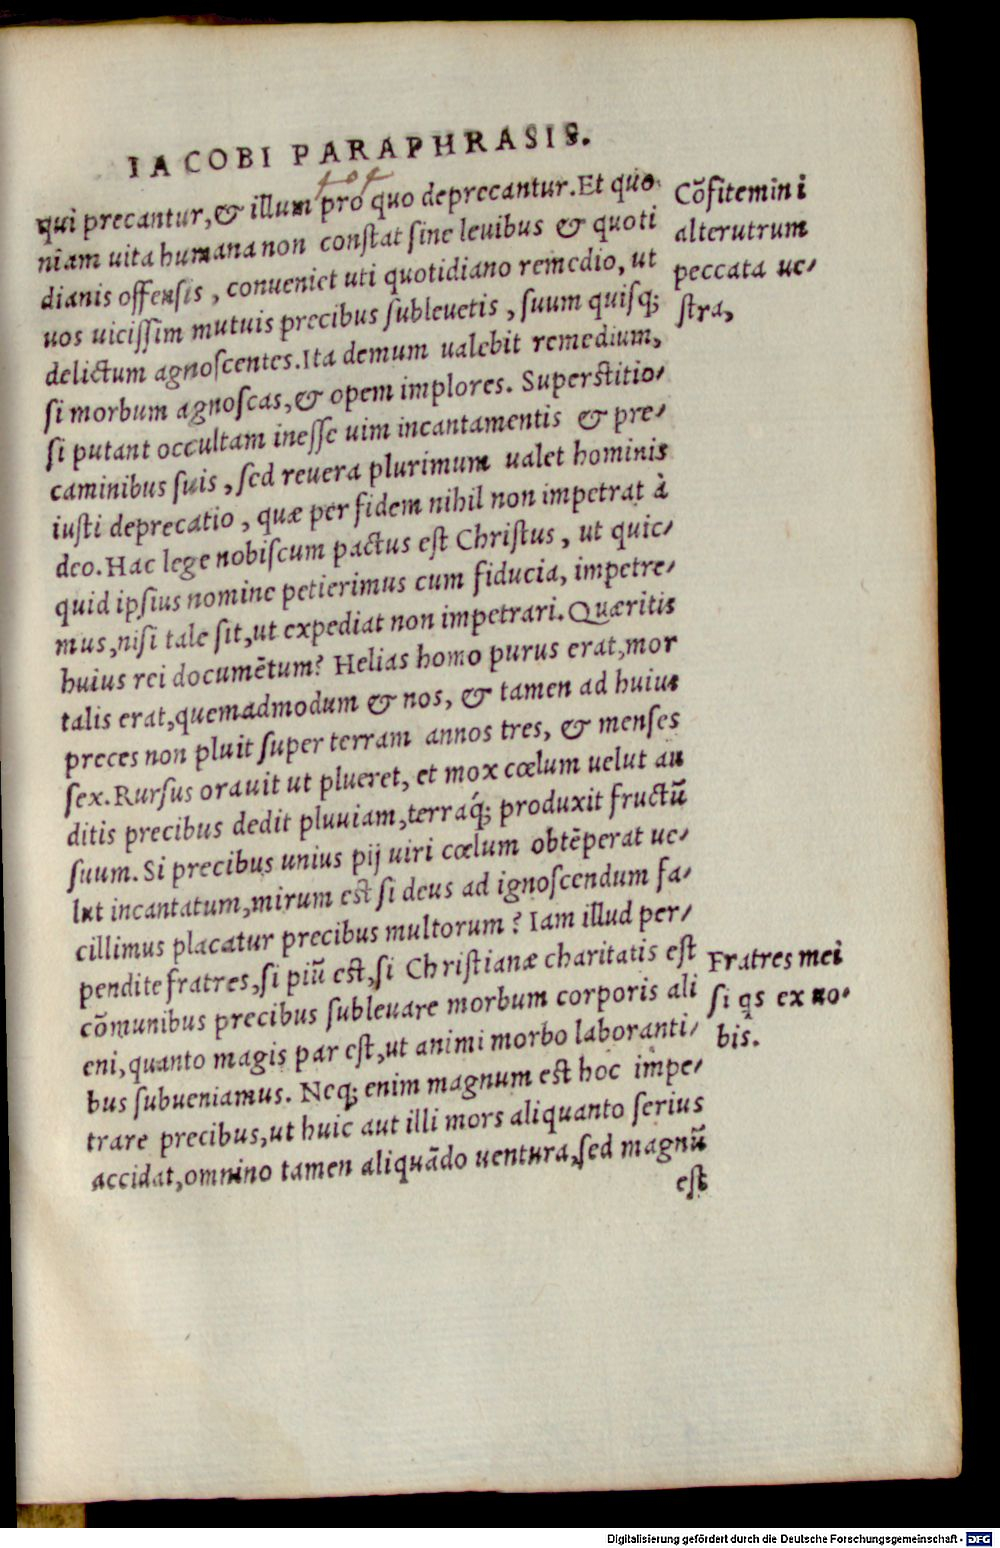 IACOBI PARAPHRASIS.
qui precantur, & illum pro quo deprecantur. Et quo
niam uita humana non constat sine leuibus & quoti
dianis offensis, conueniet uti quotidiano remedio, ut
uos uicissim mutuis precibus subleuetis, suum quisq;
delictum agnoscentes. Ita demum ualebit remedium,
si morbum agnoscas, & opem implores. Superstitio-
si putant occultam inesse uim incantamentis & pre-
caminibus suis, sed reuera plurimum ualet hominis
iusti deprecatio, quæ per fidem nihil non impetrat à
deo. Hac lege nobiscum pactus est Christus, ut quic-
quid ipsius nomine petierimus cum fiducia, impetre-
mus, nisi tale sit, ut expediat non impetrari. Quæritis
huius rei documẽtum? Helias homo purus erat, mor
talis erat, quemadmodum & nos, & tamen ad huius
preces non pluit super terram annos tres, & menses
sex. Rursus orauit ut plueret, et mox cœlum uelut au
ditis precibus dedit pluuiam, terraq́; produxit fructũ
suum. Si precibus unius pij uiri cœlum obtẽperat ue-
lut incantatum, mirum est si deus ad ignoscendum fa-
cillimus placatur precibus multorum? Iam illud per-
pendite fratres, si piũ est, si Christianæ charitatis est
cõmunibus precibus subleuare morbum corporis ali
eni, quanto magis par est, ut animi morbo laboranti-
bus subueniamus. Neq; enim magnum est hoc impe-
trare precibus, ut huic aut illi mors aliquanto serius
accidat, omnino tamen aliquãdo uentura, sed magnũ
est
Cõfitemini
alterutrum
peccata ue-
stra,
Fratres mei
si q̃s ex uo-
bis.
Digitalisierung gefördert durch die Deutsche Forschungsgemeinschaft - DFG